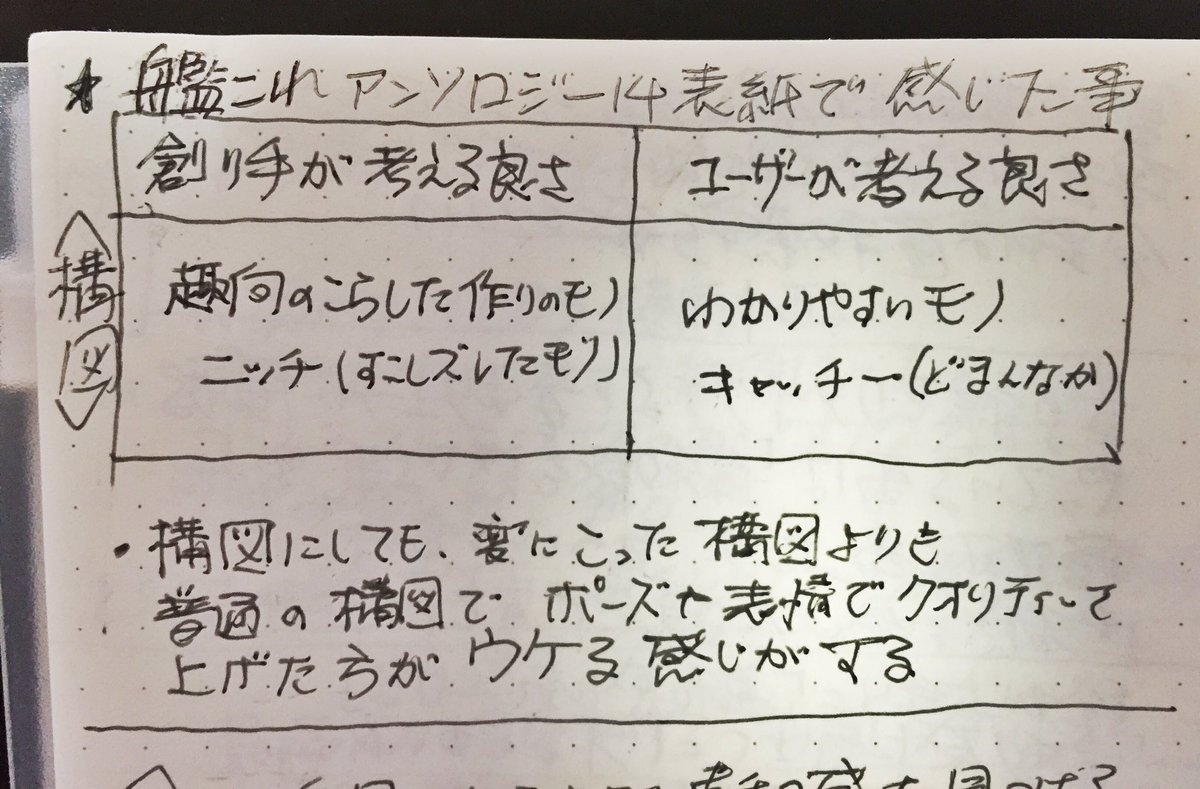 ★ 艦これアンソロジー14表紙で感じた事
創り手が考える良さ
ユーザーが考える良さ
〈構図〉
趣向のこらした作りのモノ
ニッチ(すこしズレたモノ)
わかりやすいモノ
キャッチー(どまんなか)
・構図にしても、変にこった構図よりも
普通の構図で ポーズや表情でクオリティーを
上げた方がウケる感じがする